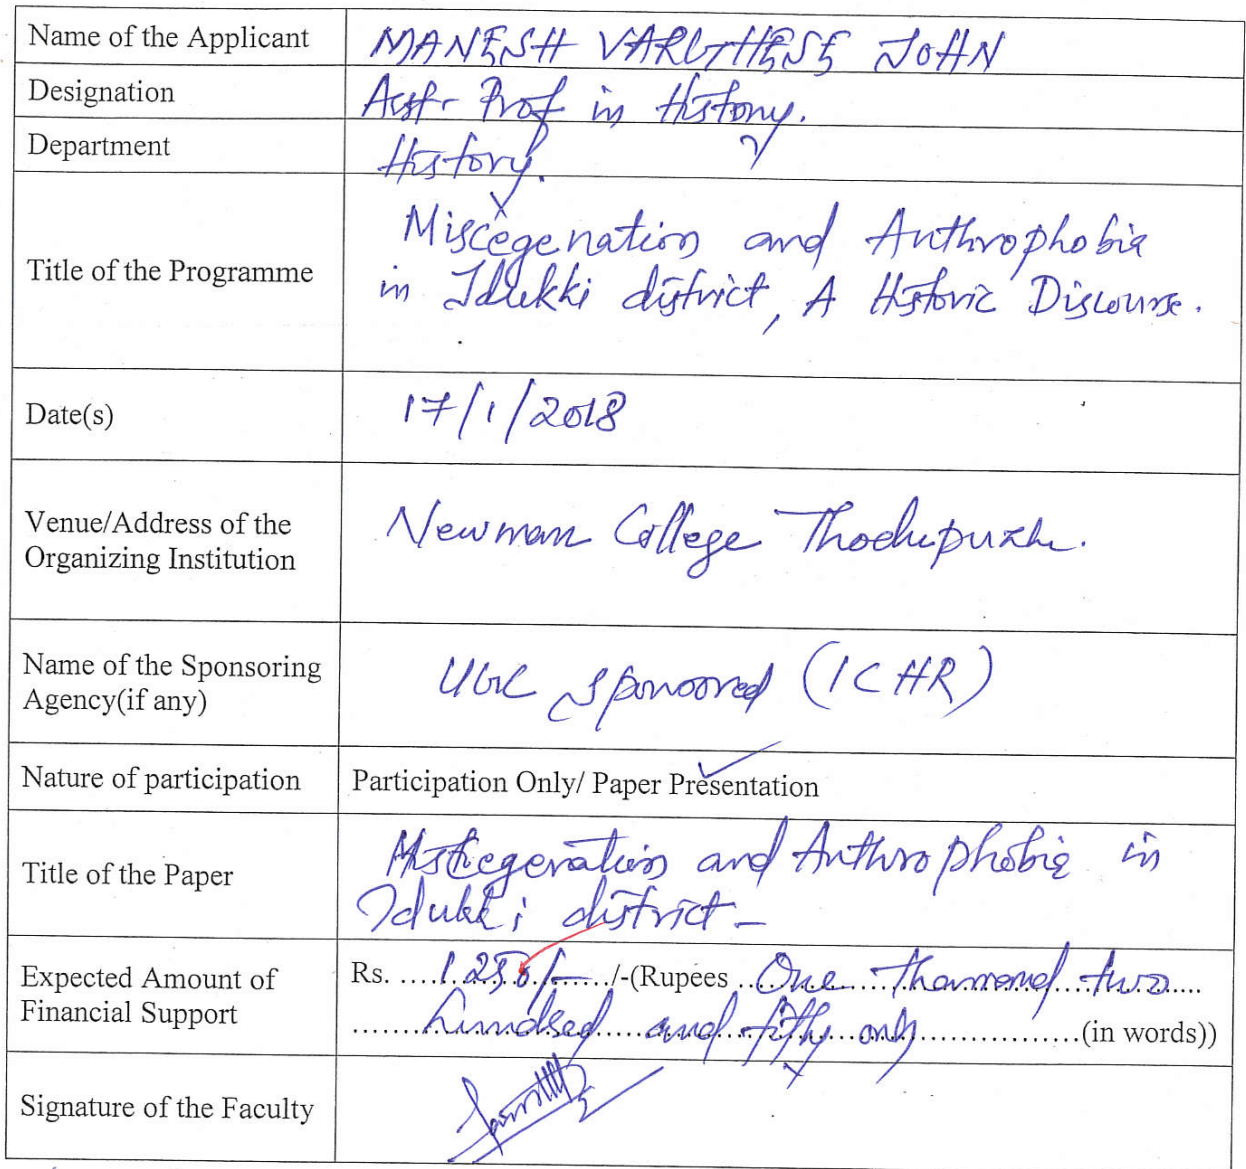 Name of the Applicant MANESH VARUGHESE JOHN
Designation Asst. Prof in History.
Department History.
Title of the Programme Miscegenation and Anthrophobia
in Idukki district, A Historic Discourse.
Date(s) 17/1/2018
Venue/Address of the
Organizing Institution Newman College Thodupuzha.
Name of the Sponsoring
Agency(if any) UGC Sponsored (ICHR)
Nature of participation Participation Only/ Paper Presentation
Title of the Paper Miscegenation and Anthrophobia in
Idukki district -
Expected Amount of
Financial Support Rs. ....1.250/-...../-(Rupees ..One thousand two....
.......hundred and fifty only.................(in words))
Signature of the Faculty